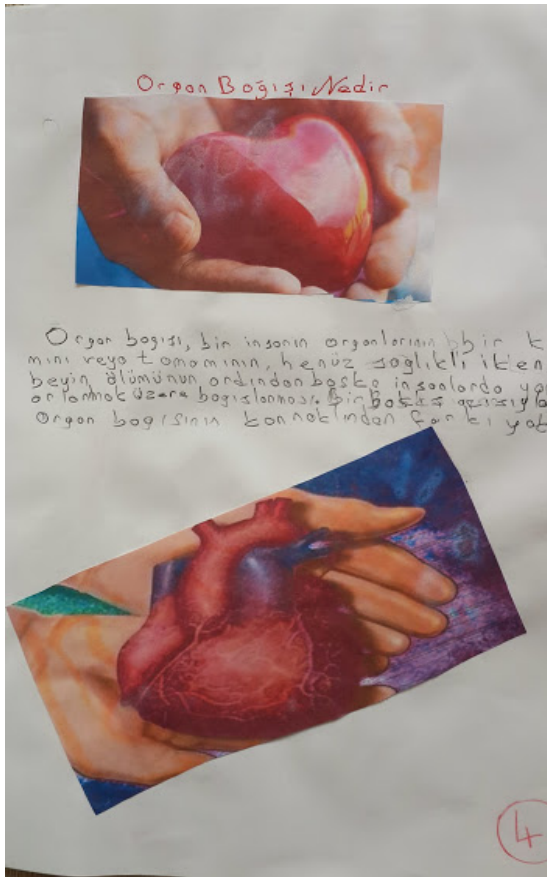 Organ Bağışı Nedir
Organ bogısı, bir insanın organlarının bbir k
mını veya tomomının, henüz soglıklı iken
beyin ölümünun ordından boska insonlorda ya
orlonmok üzere bogıslonmosı. Bir boska
Organ bogısının kan farkı yok
4